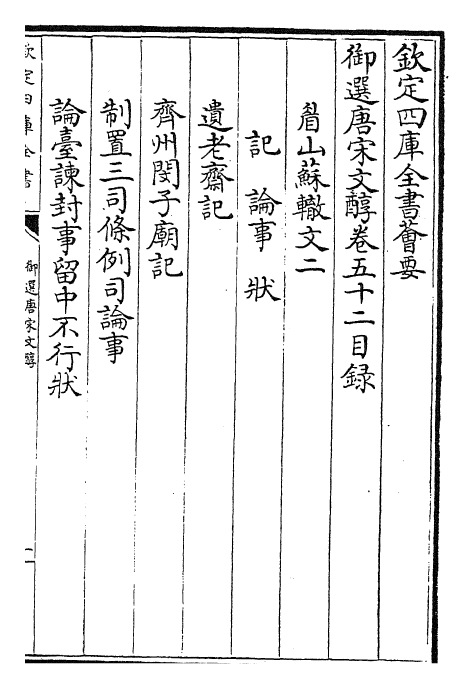 欽定四庫全書薈要
御選唐宋文醇卷五十二目録
眉山蘇轍文二
記 論事 狀
遺老齋記
齊州閔子廟記
制置三司條例司論事
論臺諫封事留中不行狀
欽定四庫全書
御選唐宋文醇
一